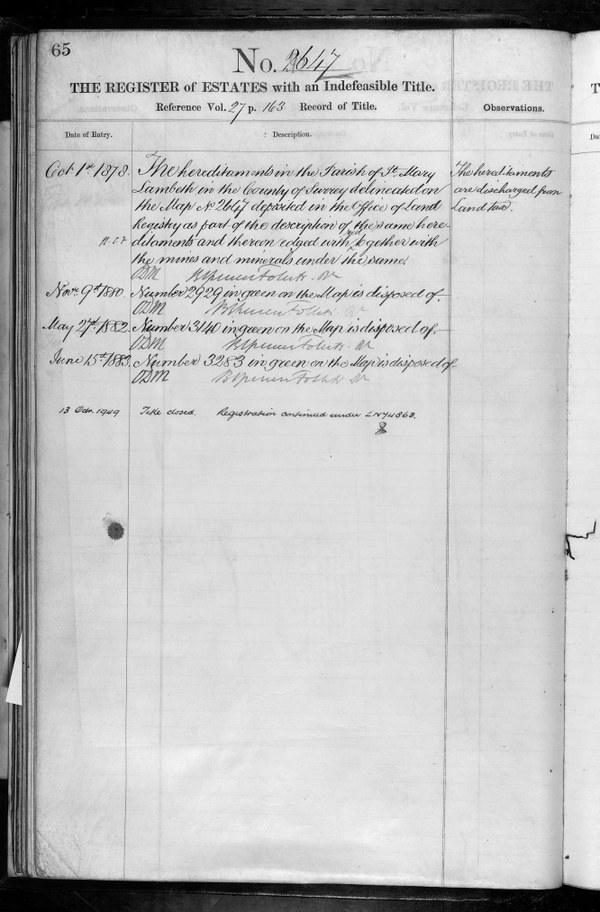 65
No. 2647
THE REGISTER of ESTATES with an Indefeasible Title.
Reference Vol. 27 p. 163 Record of Title.
Observations.
Date of Entry.
Description.
Oct 1st 1878. The hereditaments in the Parish of St. Mary
Lambeth in the County of Surrey delineated on
the Map No 2647 deposited in the Office of Land
Registry as part of the description of the same here-
ditaments and thereon edged with red together with
the mines and minerals under the same
The hereditaments
are discharged from
Land tax.
ODM
Novr 9th 1880. Number 2929 in green on the Map is disposed of
ODM
May 27th 1882. Number 3140 in green on the Map is disposed of
ODM
June 15th 1883. Number 3283 in green on the Map is disposed of
ODM
13 Oct. 1949 Title closed. Registration continued under LN94863.